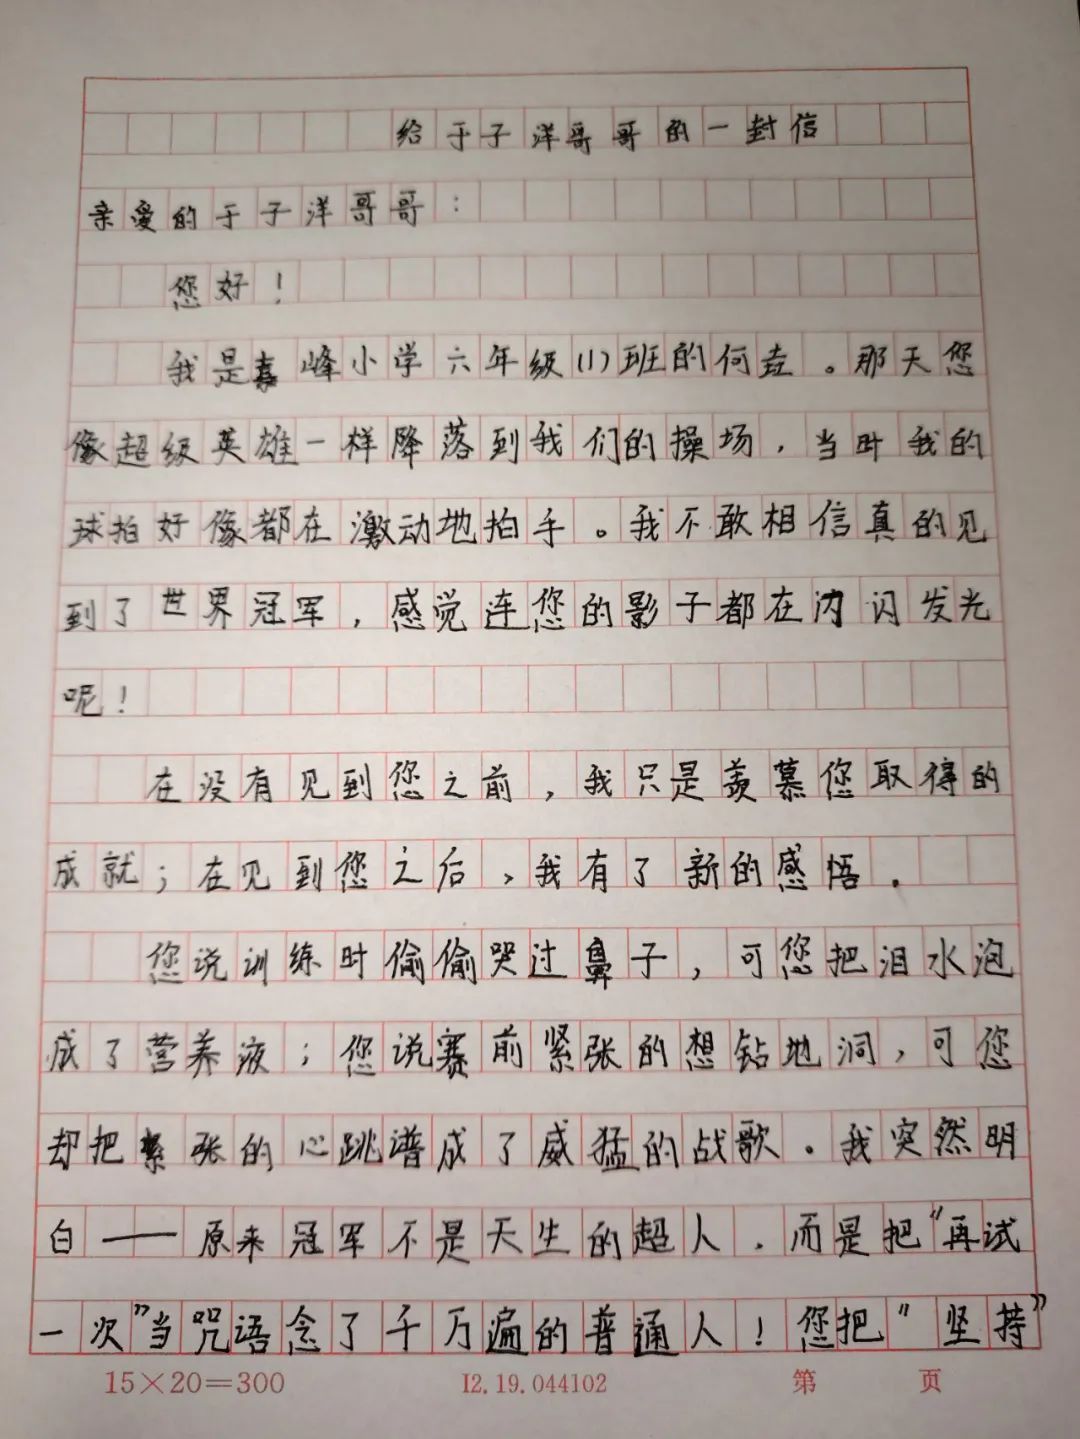 给于子洋哥哥的一封信
亲爱的于子洋哥哥：
您好！
我是嘉峰小学六年级(1)班的何垚。那天您
像超级英雄一样降落到我们的操场，当时我的
球拍好像都在激动地拍手。我不敢相信真的见
到了世界冠军，感觉连您的影子都在闪闪发光
呢！
在没有见到您之前，我只是羡慕您取得的
成就；在见到您之后，我有了新的感悟。
您说训练时偷偷哭过鼻子，可您把泪水泡
成了营养液；您说赛前紧张的想钻地洞，可您
却把紧张的心跳谱成了威猛的战歌。我突然明
白——原来冠军不是天生的超人，而是把“再试
一次”当咒语念了千万遍的普通人！您把“坚持”
15×20=300 12.19.044102 第 页